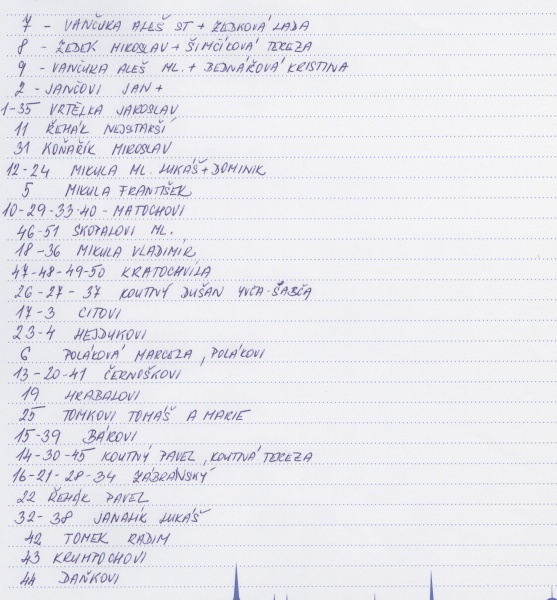 7 - VANČURA ALEŠ ST + ZEDKOVÁ LADA
8 - ZEDEK MIROSLAV + ŠIMČÍKOVÁ TEREZA
9 - VANČURA ALEŠ ML. + BEDNÁŘOVÁ KRISTINA
2 - JANČOVI JAN +
1-35 VRTĚLKA JAROSLAV
11 ŘEHÁK NEJSTARŠÍ
31 KOŇAŘÍK MIROSLAV
12-24 MIKULA ML. LUKÁŠ + DOMINIK
5 MIKULA FRANTIŠEK
10-29-33-40 - MATOCHOVI
46-51 ŠKOPALOVI ML.
18-36 MIKULA VLADIMÍR
47-48-49-50 KRATOCHVÍLA
26-27-37 KOUTNÝ DUŠAN YVČA-ŠABČA
17-3 CITOVI
23-4 HEJDUKOVI
6 POLÁKOVÁ MARCELA, POLÁKOVI
13-20-41 ČERNOŠKOVI
19 HRABALOVI
25 TOMKOVI TOMÁŠ A MARIE
15-39 BÁROVI
14-30-45 KOUTNÝ PAVEL, KOUTNÁ TEREZA
16-21-28-34 ZÁBRANSKÝ
22 ŘEHÁK PAVEL
32-38 JANALÍK LUKÁŠ
42 TOMEK RADIM
43 KRUMPOCHOVI
44 DAŇKOVI